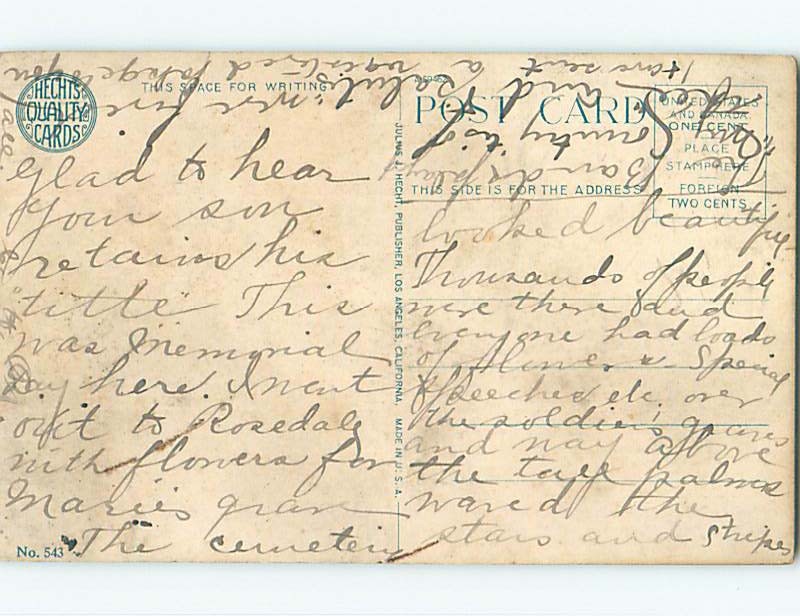 HECHT'S
QUALITY
CARDS
THIS SPACE FOR WRITING
Glad to hear
your son
retains his
title This
was Memorial
Day here. I went
out to Rosedale
with flowers for
Maries grave
The cemetery
No. 543
JULIUS J. HECHT, PUBLISHER, LOS ANGELES, CALIFORNIA. MADE IN U.S.A.
POST CARD
THIS SIDE IS FOR THE ADDRESS
UNITED STATES
AND CANADA
ONE CENT
PLACE
STAMP HERE
FOREIGN
TWO CENTS
looked beautiful
Thousands of people
were there and
everyone had loads
of flowers & Special
Speeches etc. over
the soldiers' graves
and way above
the tall palms
waved the
stars and stripes
I have sent a registered package to you